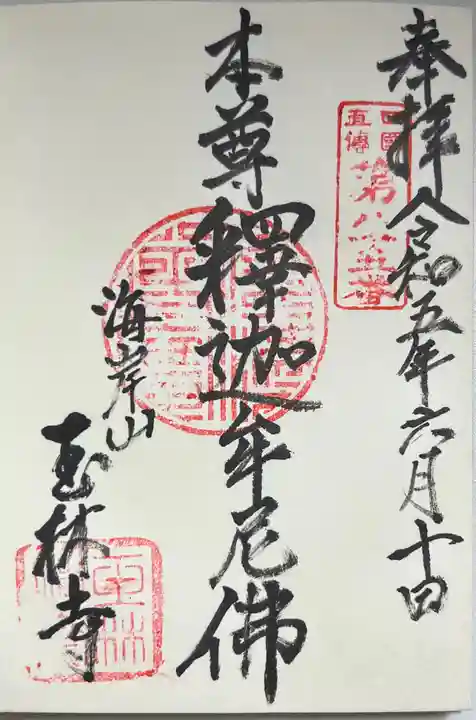 奉拝 令和五年六月十四
四國
直傳
第八十五番
本尊 釋迦牟尼佛
海岸山
玉林寺